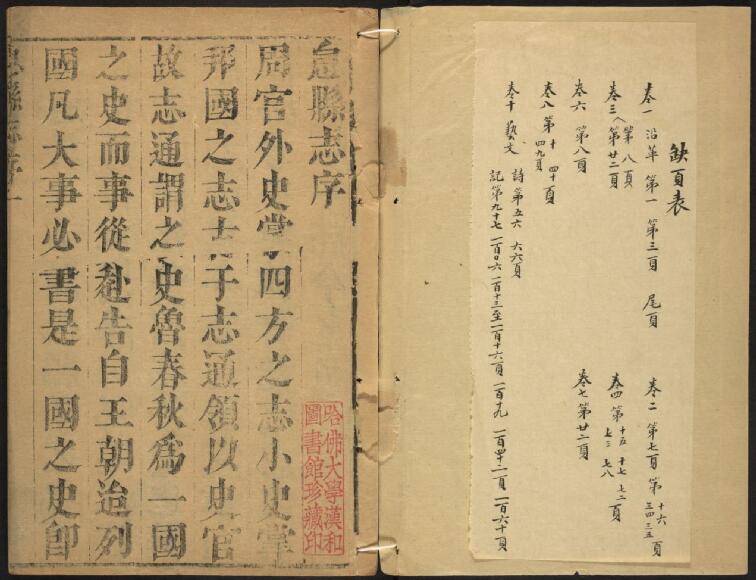 缺頁表
卷一 沿革 第一 第三頁 尾頁
卷二 第七頁 第十六 三四 三五頁
卷三 第八頁 第廿二頁
卷四 第十五 十七 七二頁 七三 七八
卷六 第八頁
卷七 第廿二頁
卷八 第十 四十頁 四九頁
卷十 藝文 詩 第五六 六六頁
記 第九十七 一百〇六 一百十三至一百十六頁 一百十九 一百四十二頁 一百六十頁
息縣志序
周官外史掌四方之志小史掌
邦國之志夫子志通領以史官
故志通謂之史魯春秋為一國
之史而事從赴告自王朝迨列
國凡大事必書是一國之史即
息縣志序 一
哈佛大學漢和
圖書館珍藏印